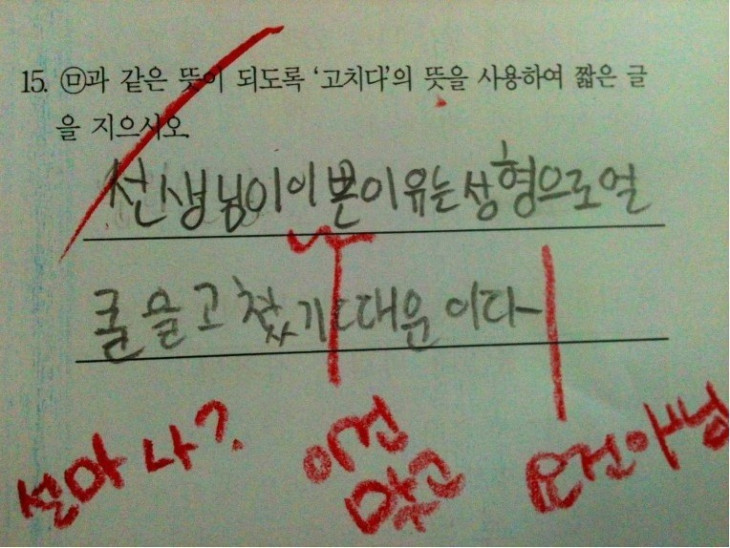 15. ㉤과 같은 뜻이 되도록 '고치다'의 뜻을 사용하여 짧은 글
을 지으시오
선생님이이쁜이유는성형으로얼
굴을고쳤기때운이다
설마 나?
이건
맞고
요건아님